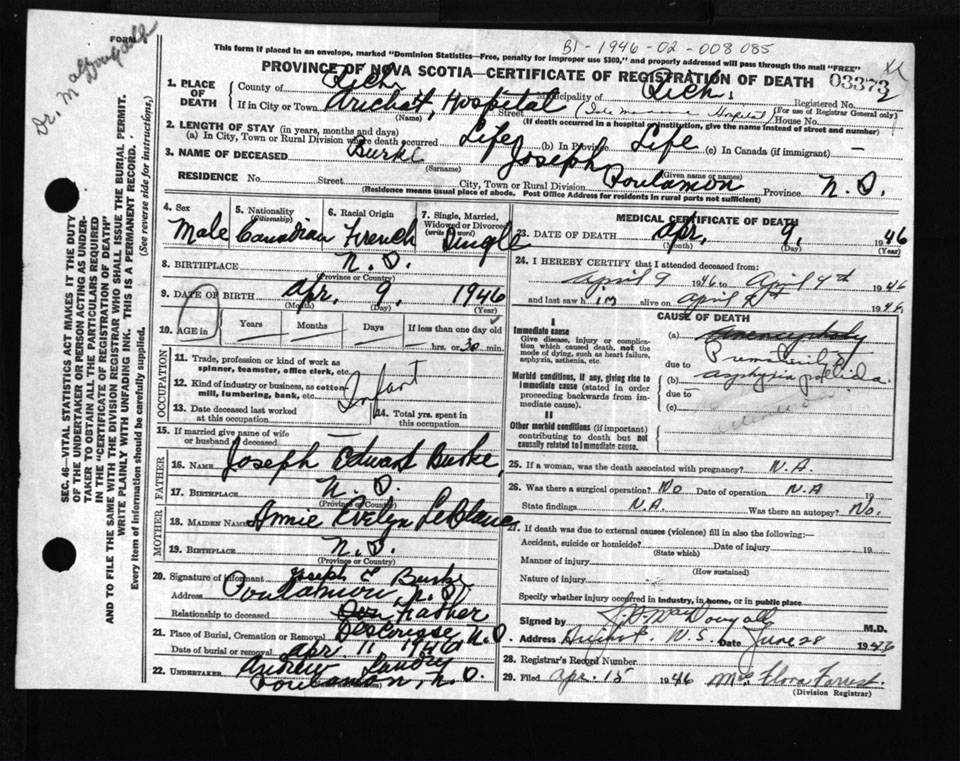 FORM
Dr. MacDougall
B1-1946-02-008085
This form if placed in an envelope, marked "Dominion Statistics—Free, penalty for improper use $300," and properly addressed will pass through the mail "FREE"
PROVINCE OF NOVA SCOTIA—CERTIFICATE OF REGISTRATION OF DEATH
03373
1. PLACE OF DEATH
County of Rich. Municipality of Rich. Registered No. 2
(For use of Registrar General only)
If in City or Town Arichat, Hospital Street House No.
(Name) (If death occurred in a hospital or institution, give the name instead of street and number)
2. LENGTH OF STAY (in years, months and days)
(a) In City, Town or Rural Division where death occurred Life (b) In Province Life (c) In Canada (if immigrant) —
3. NAME OF DECEASED Burke Joseph
(Surname) (Given name or names)
RESIDENCE No. Street City, Town or Rural Division Poulamon Province N.S.
(Residence means usual place of abode. Post Office Address for residents in rural parts not sufficient)
4. Sex Male
5. Nationality (Citizenship) Canadian
6. Racial Origin French
7. Single, Married, Widowed or Divorced (write word) Single
8. BIRTHPLACE N.S.
(Province or Country)
9. DATE OF BIRTH Apr. 9, 1946
(Month) (Day) (Year)
10. AGE in Years Months Days If less than one day old
hrs. or 30 min.
OCCUPATION
11. Trade, profession or kind of work as spinner, teamster, office clerk, etc.
12. Kind of industry or business, as cotton-mill, lumbering, bank, etc. Infant
13. Date deceased last worked at this occupation
14. Total yrs. spent in this occupation
15. If married give name of wife or husband of deceased —
FATHER
16. NAME Joseph Edward Burke
17. BIRTHPLACE N.S.
(Province or Country)
MOTHER
18. MAIDEN NAME Annie Evelyn LeBlanc
19. BIRTHPLACE N.S.
(Province or Country)
20. Signature of informant Joseph E Burke
Address Poulamon N.S.
Relationship to deceased Father
21. Place of Burial, Cremation or Removal Descousse N.S.
Date of burial or removal Apr 11 1946
22. UNDERTAKER Andrew Landry
Poulamon, N.S.
MEDICAL CERTIFICATE OF DEATH
23. DATE OF DEATH Apr. 9, 1946
(Month) (Day) (Year)
24. I HEREBY CERTIFY that I attended deceased from:
April 9 1946 to April 9th 1946
and last saw him alive on April 9th 1946
CAUSE OF DEATH
I
Immediate cause
Give disease, injury or complication which caused death, not the mode of dying, such as heart failure, asphyxia, asthenia, etc.
Morbid conditions, if any, giving rise to immediate cause (stated in order proceeding backwards from immediate cause).
II
Other morbid conditions (if important) contributing to death but not causally related to immediate cause.
(a)
Prematurity
due to
(b) asphyxia
due to
(c)
25. If a woman, was the death associated with pregnancy? N.A.
26. Was there a surgical operation? No Date of operation N.A 19
State findings N.A. Was there an autopsy? No.
27. If death was due to external causes (violence) fill in also the following:
Accident, suicide or homicide? Date of injury 19
(State which)
Manner of injury
(How sustained)
Nature of injury
Specify whether injury occurred in industry, in home, or in public place
Signed by MacDougall M.D.
Address Arichat. N.S. Date June 28 1946
28. Registrar's Record Number
29. Filed Apr. 15 1946 Mrs Flora Forrest
(Division Registrar)
SEC. 46—VITAL STATISTICS ACT MAKES IT THE DUTY
OF THE UNDERTAKER OR PERSON ACTING AS UNDER-
TAKER TO OBTAIN ALL THE PARTICULARS REQUIRED
IN THE "CERTIFICATE OF REGISTRATION OF DEATH"
AND TO FILE THE SAME WITH THE DIVISION REGISTRAR WHO SHALL ISSUE THE BURIAL PERMIT.
WRITE PLAINLY WITH UNFADING INK. THIS IS A PERMANENT RECORD.
Every item of information should be carefully supplied. (See reverse side for instructions.)